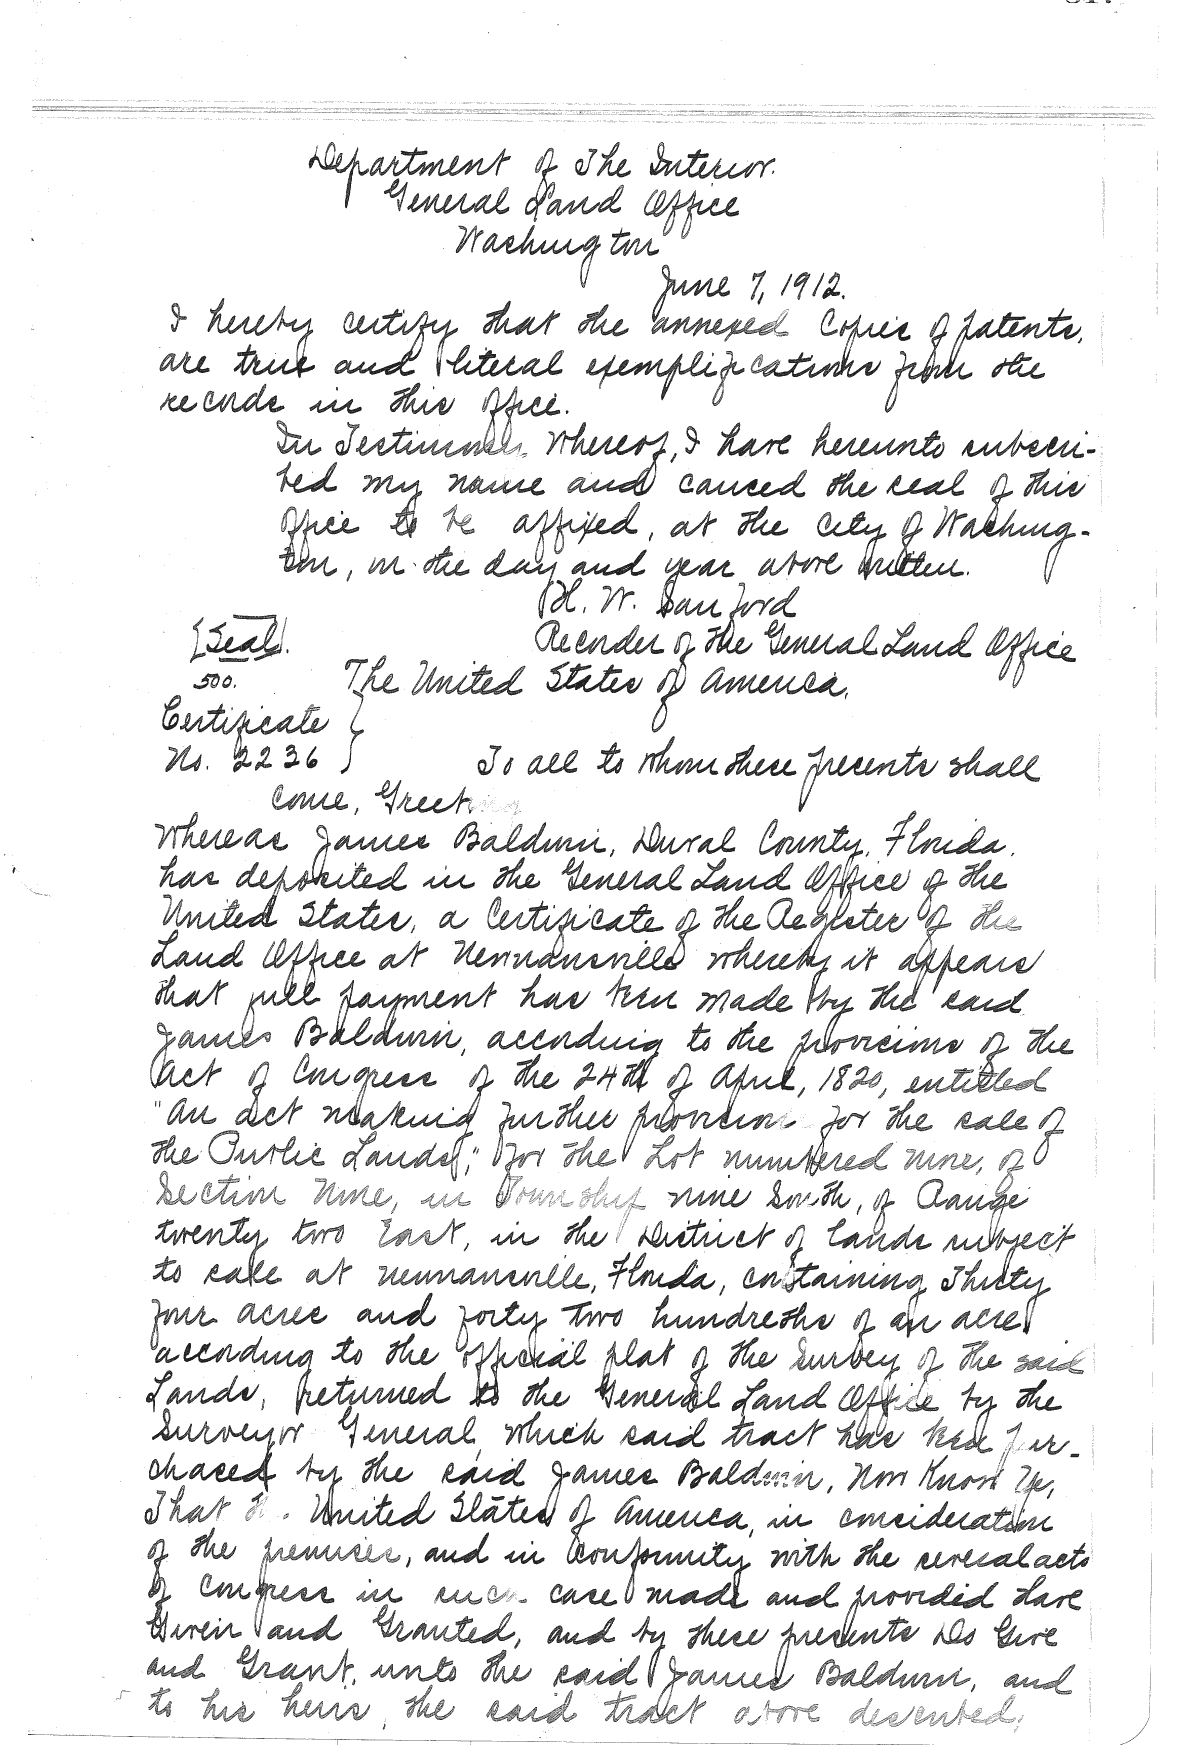 Department of The Interior.
General Land Office
Washington
June 7, 1912.
I hereby certify that the annexed Copies of patents,
are true and literal exemplifications from the
records in this office.
In Testimony Whereof, I have hereunto subscri-
bed my name and caused the seal of this
office to be affixed, at the city of Washing-
ton, on the day and year above written.
H. W. Sanford
{Seal}.
Recorder of the General Land Office
500.
The United States of America,
Certificate
No. 2236
To all to whom these presents shall
come, Greeting
Whereas James Baldwin, Duval County, Florida.
has deposited in the General Land Office of the
United States, a Certificate of the Register of the
Land Office at Newnansville whereby it appears
that full payment has been made by the said
James Baldwin, according to the provisions of the
Act of Congress of the 24th of April, 1820, entitled
"An Act making further provision for the sale of
the Public Lands," for the Lot numbered nine, of
Section Nine, in Township nine South, of Range
twenty two East, in the District of lands subject
to sale at Newnansville, Florida, containing Thirty
four acres and forty two hundreths of an acre
according to the official plat of the Survey of the said
Lands, returned to the General Land Office by the
Surveyor General, which said tract has been pur-
chased by the said James Baldwin, Now Know Ye,
That United States of America, in consideration
of the premises, and in conformity with the several acts
of Congress in such case made and provided Have
Given and Granted, and by these presents Do Give
and Grant, unto the said James Baldwin, and
to his heirs, the said tract above described;